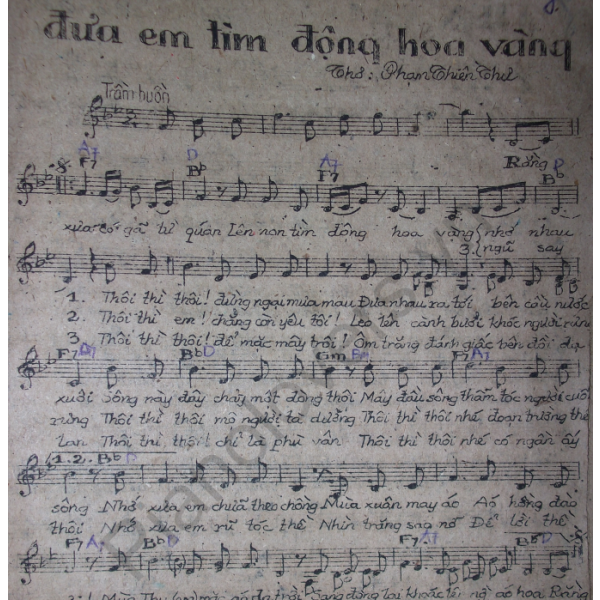 đưa em tìm động hoa vàng
Thơ: Phạm Thiên Thư
Trầm buồn
A7 D A7 D
F7 Bb F7 Rằng Bb
xưa có gã từ quan Lên non tìm động hoa vàng nhớ nhau
3. ngủ say
1. Thôi thì thôi! đừng ngại mưa mau Đưa nhau ra tới bên cầu nước
2. Thôi thì em! chẳng còn yêu tôi! Leo lên cành bưởi khóc người rưn
3. Thôi thì thôi! để mặc mây trôi! Ôm trăng đánh giấc bên đồi dạ
F7 Bb D Gm F7 A7
xuôi Sông này đây chảy một dòng thôi Mấy đầu sông thẩm tóc người cuối
rưng Thôi thì thôi mộ người tà dương Thôi thì thôi nhé đoạn trường thế
lan Thôi thì thôi chỉ là phù vân Thôi thì thôi nhé có ngần ấy
1.2. Bb D
sông Nhớ xưa em chưa theo chồng Mùa xuân may áo Áo hồng đào
thôi Nhớ xưa em rũ tóc thề Nhìn trăng sao nỡ Để lời thề
F7 A7 Bb D F7 A7 Bb D